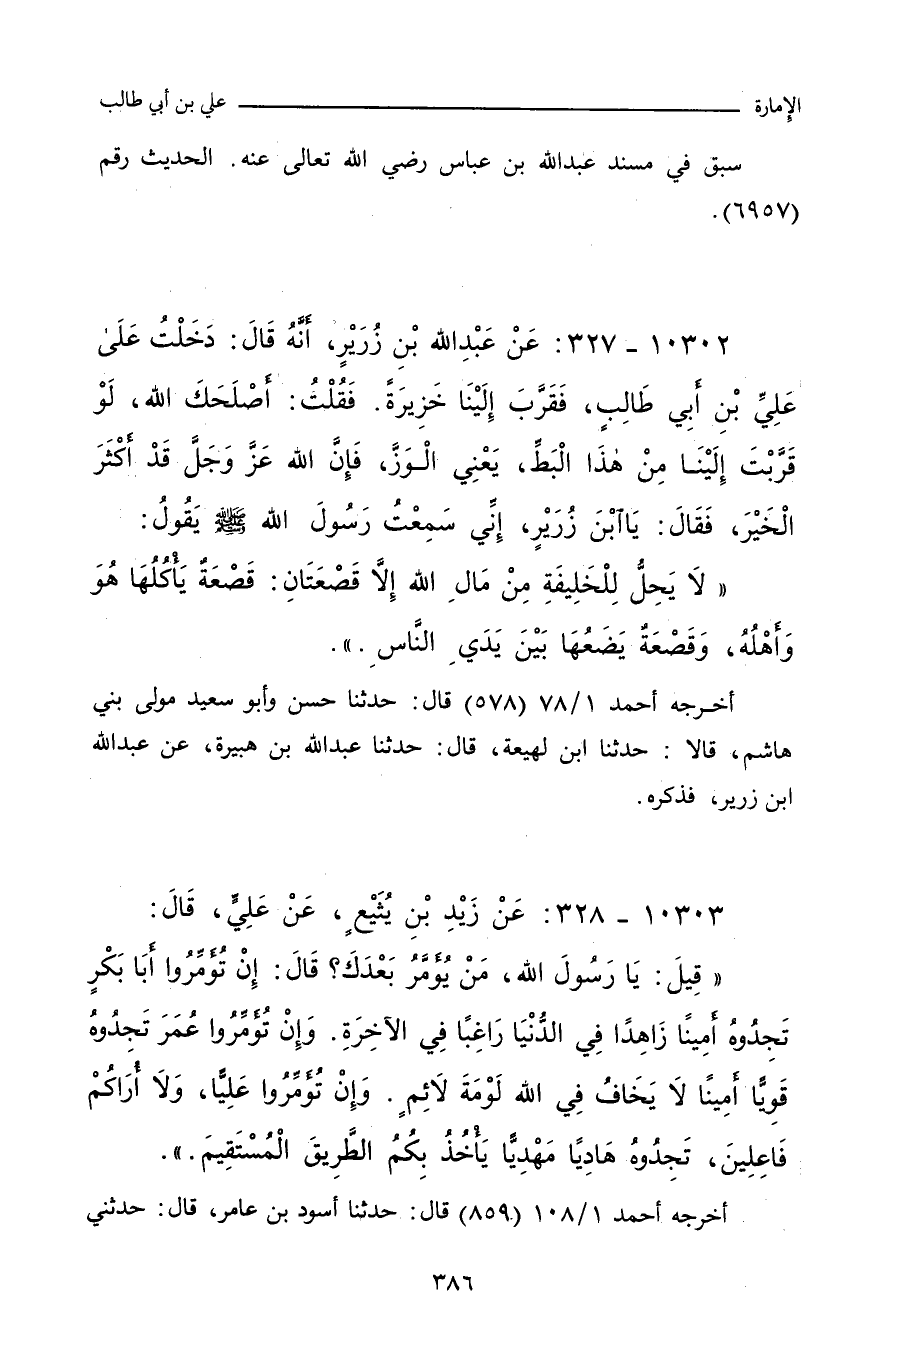 الإمارة ــــــــــ علي بن أبي طالب
سبق في مسند عبدالله بن عباس رضي الله تعالى عنه. الحديث رقم
(٦٩٥٧).
١٠٣٠٢ - ٣٢٧: عَنْ عَبْدِالله بْنِ زُرَيْرٍ، أَنَّهُ قَالَ: دَخَلْتُ عَلَىٰ
عَلِيِّ بْنِ أَبِي طَالِبٍ، فَقَرَّبَ إِلَيْنَا خَزِيرَةً. فَقُلْتُ: أَصْلَحَكَ الله، لَوْ
قَرَّبْتَ إِلَيْنَا مِنْ هٰذَا الْبَطِّ، يَعْنِي الْوَزَّ، فَإِنَّ الله عَزَّ وَجَلَّ قَدْ أَكْثَرَ
الْخَيْرَ، فَقَالَ: يَاآبْنَ زُرَيْرٍ، إِنِّي سَمِعْتُ رَسُولَ الله ﷺ يَقُولُ:
« لَا يَحِلُّ لِلْخَلِيفَةِ مِنْ مَالِ الله إِلَّا قَصْعَتَانِ: قَصْعَةٌ يَأْكُلُهَا هُوَ
وَأَهْلُهُ، وَقَصْعَةٌ يَضَعُهَا بَيْنَ يَدَيِ النَّاسِ .».
أخرجه أحمد ٧٨/١ (٥٧٨) قال: حدثنا حسن وأبو سعيد مولى بني
هاشم، قالا : حدثنا ابن لهيعة، قال: حدثنا عبدالله بن هبيرة، عن عبدالله
ابن زرير، فذكره.
١٠٣٠٣ - ٣٢٨: عَنْ زَيْدِ بْنِ يُثَيْعٍ، عَنْ عَلِيٍّ، قَالَ:
« قِيلَ: يَا رَسُولَ الله، مَنْ يُؤَمَّرُ بَعْدَكَ؟ قَالَ: إِنْ تُؤَمِّرُوا أَبَا بَكْرٍ
تَجِدُوهُ أَمِينًا زَاهِدًا فِي الدُّنْيَا رَاغِبًا فِي الآخِرَةِ. وَإِنْ تُؤَمِّرُوا عُمَرَ تَجِدُوهُ
قَوِيًّا أَمِينًا لَا يَخَافُ فِي الله لَوْمَةَ لَائِمٍ . وَإِنْ تُؤَمِّرُوا عَلِيًّا، وَلَا أُرَاكُمْ
فَاعِلِينَ، تَجِدُوهُ هَادِيًا مَهْدِيًّا يَأْخُذُ بِكُمُ الطَّرِيقَ الْمُسْتَقِيمَ .».
أخرجه أحمد ١٠٨/١ (٨٥٩) قال: حدثنا أسود بن عامر، قال: حدثني
٣٨٦